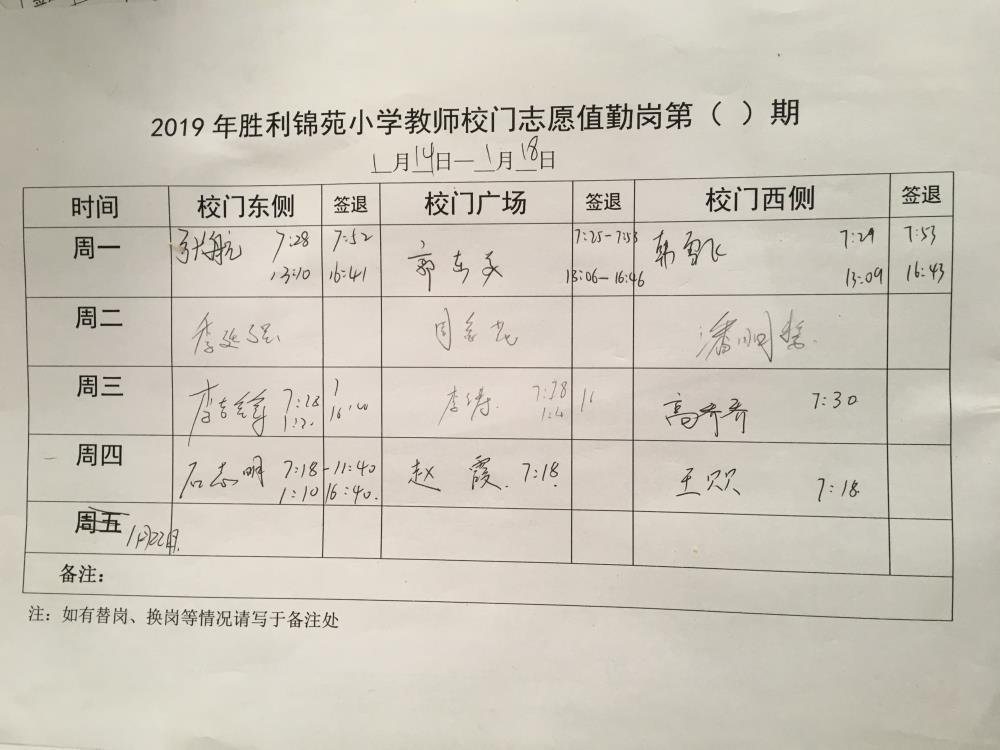 2019年胜利锦苑小学教师校门志愿值勤岗第（ ）期
1月14日—1月18日
时间 校门东侧 签退 校门广场 签退 校门西侧 签退
周一 张航 7:28 7:52 郭 7:25-7:53 韩雪飞 7:29 7:53
13:10 16:41 13:06-16:46 13:09 16:43
周二 李延强 周 潘明
周三 李 7:28 李涛 7:28 高齐齐 7:30
周四 石志明 7:18-11:40 赵霞 7:18 王贝贝 7:18
1:10 16:40
周五 1月22日
备注：
注：如有替岗、换岗等情况请写于备注处